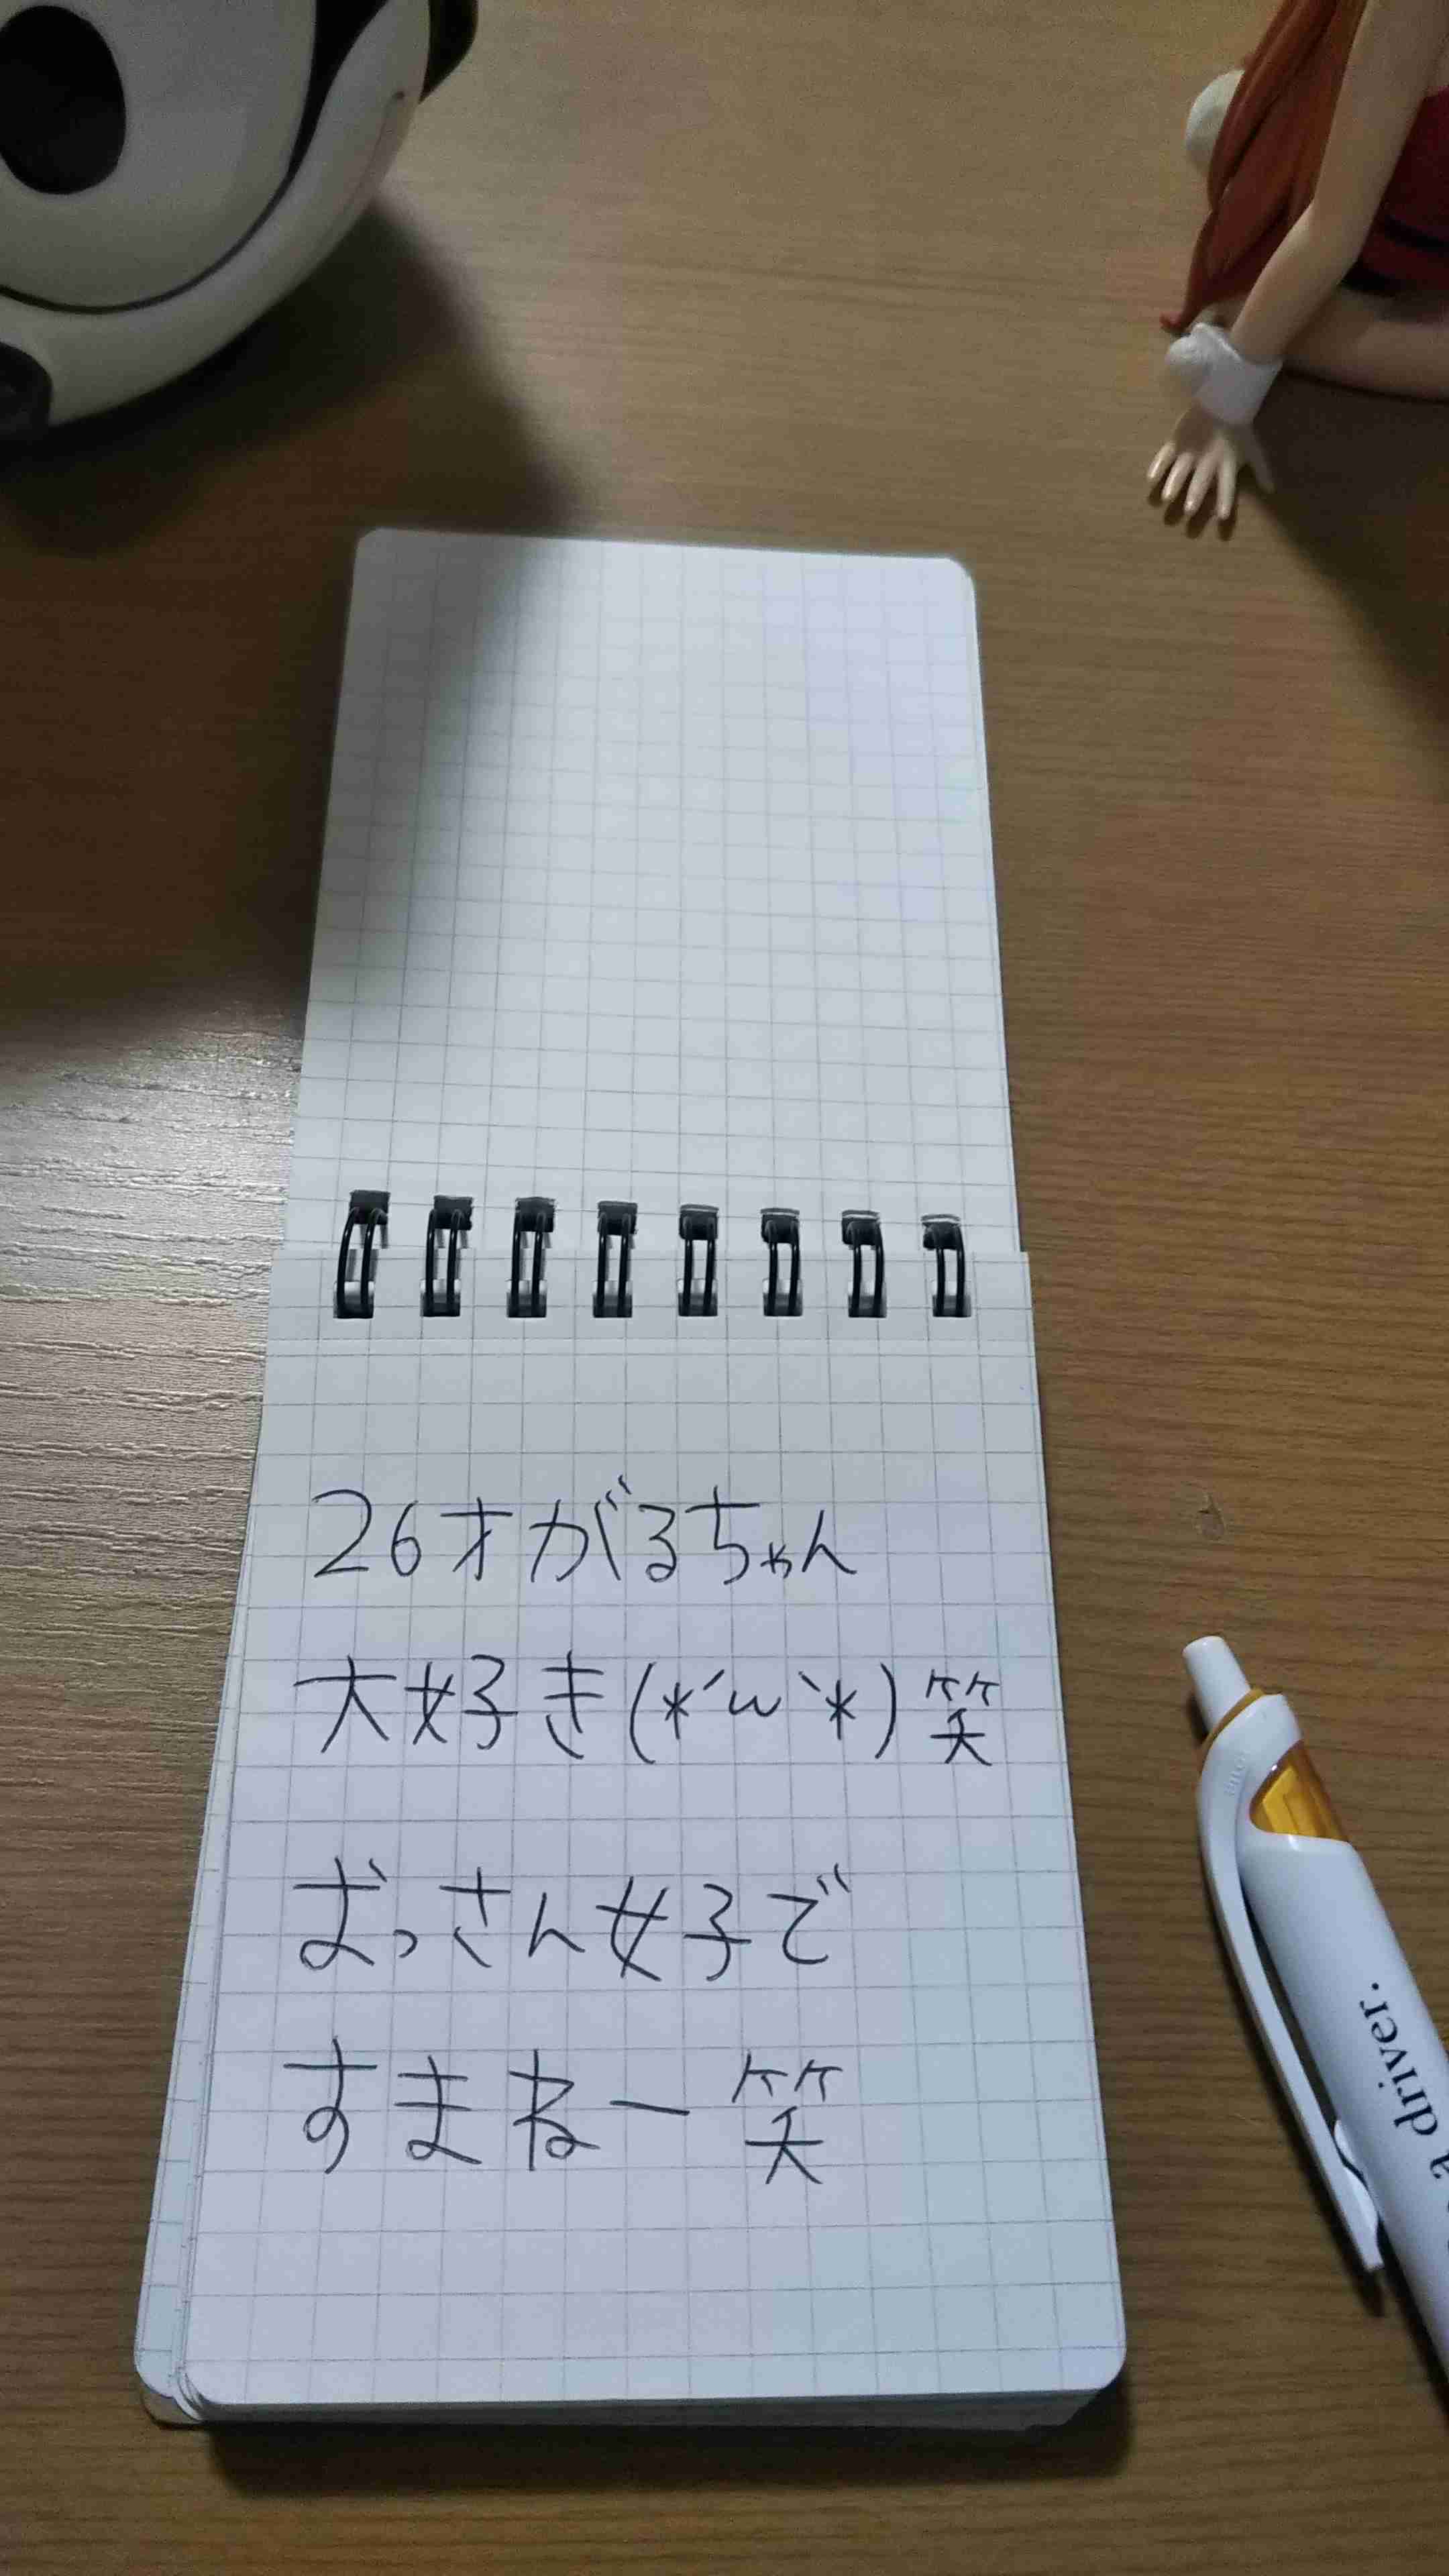 26才がるちゃん
大好き(*´ω｀*)笑
おっさん女子で
すまねー笑
a driver.